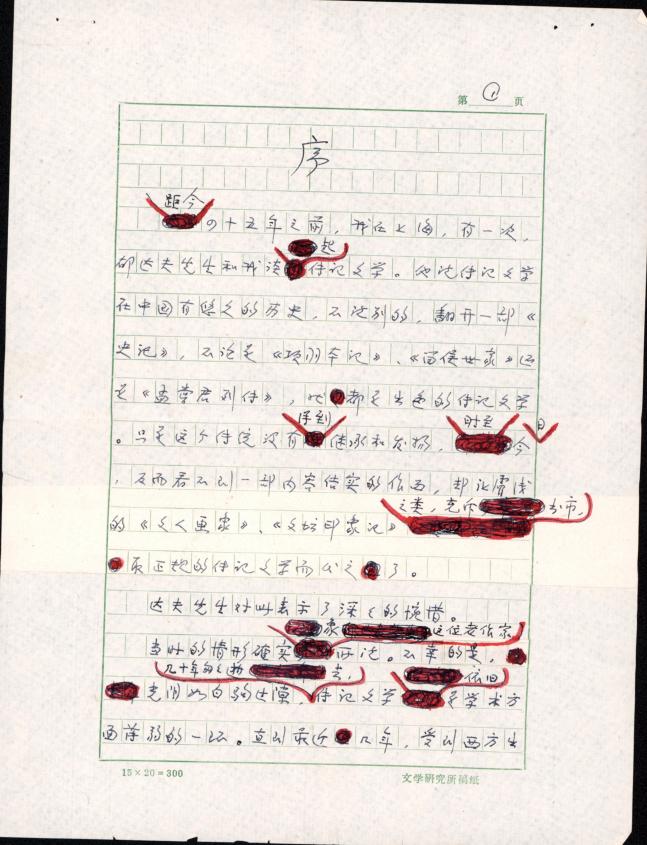 第①页
序
距今
四十五年之前，我在上海，有一次，
起
郁达夫先生和我谈传记文学。他说传记文学
在中国有悠久的历史，不说别的，翻开一部《
史记》，不论是《项羽本记》、《留侯世家》还
是《孟尝君列传》，都是出色的传记文学
得到 时至 日
。只是这个传统没有继承和发扬，今
，反而看不到一部内容结实的作品，却让肤浅
之类，充斥书市，
的《文人画象》、《文坛印象记》
真正规的传记文学而代之了。
达夫先生对此表示了深深的惋惜。
象这位老作家
当时的情形确实所说。不幸的是，
几十年的已逝去， 依旧
光阴如白驹过隙，传记文学是学术方
面薄弱的一环。直到最近几年，受到西方生
15×20=300
文学研究所稿纸